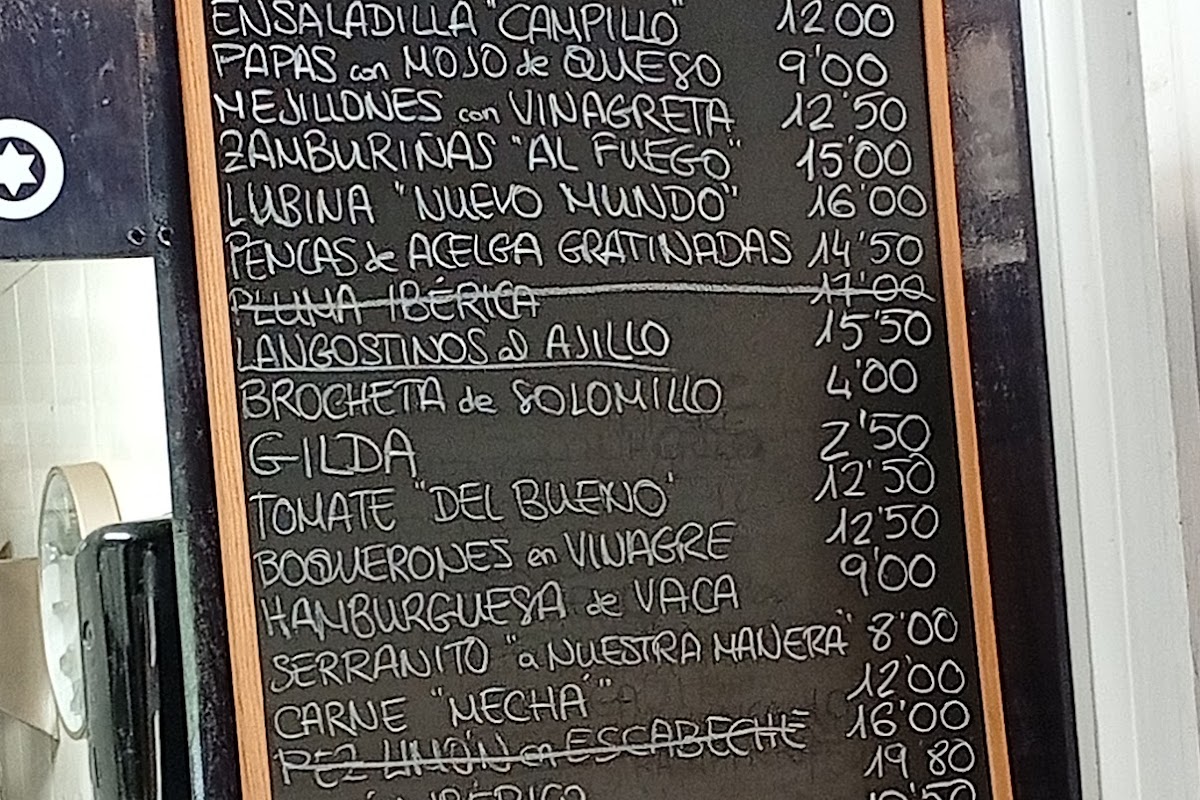 ENSALADILLA "CAMPILLO" 12'00
PAPAS con MOJO de QUESO 9'00
MEJILLONES con VINAGRETA 12'50
ZAMBURIÑAS "AL FUEGO" 15'00
LUBINA "NUEVO MUNDO" 16'00
PENCAS de ACELGA GRATINADAS 14'50
PLUMA IBÉRICA 17'00
LANGOSTINOS al AJILLO 15'50
BROCHETA de SOLOMILLO 4'00
GILDA 2'50
TOMATE "DEL BUENO" 12'50
BOQUERONES en VINAGRE 12'50
HAMBURGUESA de VACA 9'00
SERRANITO "a NUESTRA MANERA" 8'00
CARNE "MECHÁ" 12'00
PEZ LIMÓN en ESCABECHE 16'00
IBÉRICO 19'80